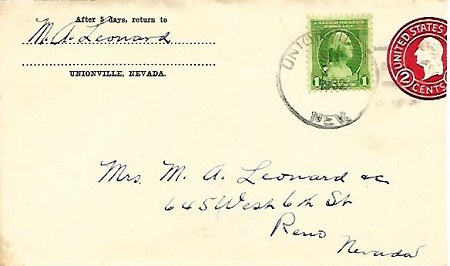 After 5 days, return to
M. A. Leonard
UNIONVILLE, NEVADA.
UNITED STATES POSTAGE
1 1
UNION
1932
NEV.
UNITED STATES
2
CENTS
Mrs. M. A. Leonard
645 West 6th St
Reno
Nevada